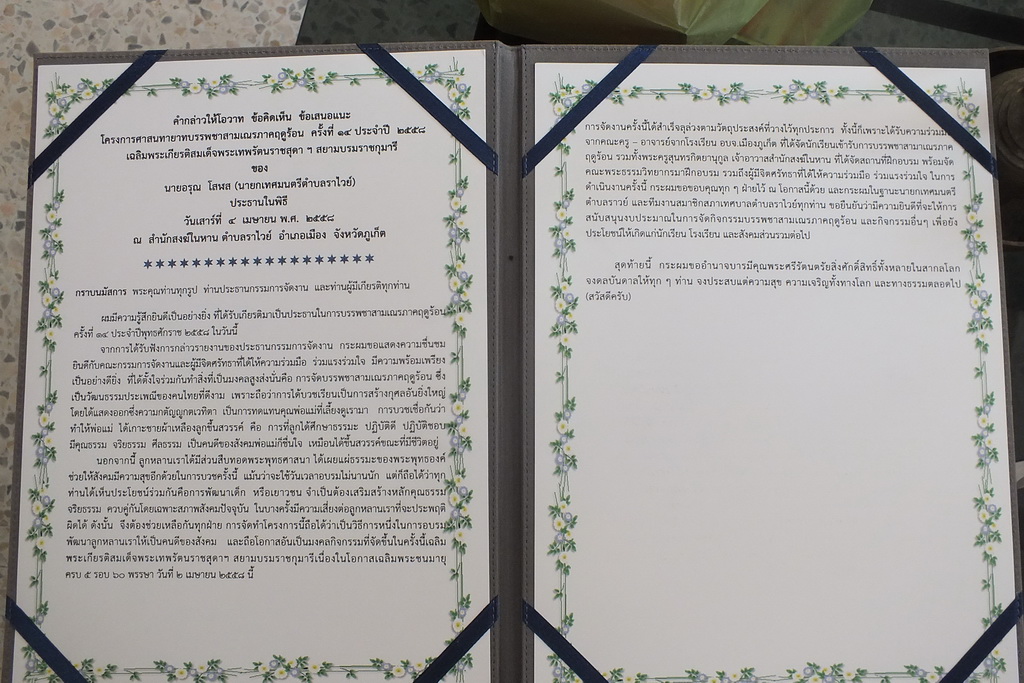 คำกล่าวให้โอวาท ข้อคิดเห็น ข้อเสนอแนะ
โครงการศาสนทายาทบรรพชาสามเณรภาคฤดูร้อน ครั้งที่ ๑๔ ประจำปี ๒๕๕๘
เฉลิมพระเกียรติสมเด็จพระเทพรัตนราชสุดา ฯ สยามบรมราชกุมารี
ของ
นายอรุณ โสฬส (นายกเทศมนตรีตำบลราไวย์)
ประธานในพิธี
วันเสาร์ที่ ๔ เมษายน พ.ศ. ๒๕๕๘
ณ สำนักสงฆ์ในหาน ตำบลราไวย์ อำเภอเมือง จังหวัดภูเก็ต
******************
กราบนมัสการ พระคุณท่านทุกรูป ท่านประธานกรรมการจัดงาน และท่านผู้มีเกียรติทุกท่าน
ผมมีความรู้สึกยินดีเป็นอย่างยิ่ง ที่ได้รับเกียรติมาเป็นประธานในการบรรพชาสามเณรภาคฤดูร้อน
ครั้งที่ ๑๔ ประจำปีพุทธศักราช ๒๕๕๘ ในวันนี้
จากการได้รับฟังการกล่าวรายงานของประธานกรรมการจัดงาน กระผมขอแสดงความชื่นชม
ยินดีกับคณะกรรมการจัดงานและผู้มีจิตศรัทธาที่ได้ให้ความร่วมมือ ร่วมแรงร่วมใจ มีความพร้อมเพรียง
เป็นอย่างดียิ่ง ที่ได้ตั้งใจร่วมกันทำสิ่งที่เป็นมงคลสูงส่งนั่นคือ การจัดบรรพชาสามเณรภาคฤดูร้อน ซึ่ง
เป็นวัฒนธรรมประเพณีของคนไทยที่ดีงาม เพราะถือว่าการได้บวชเรียนเป็นการสร้างกุศลอันยิ่งใหญ่
โดยได้แสดงออกซึ่งความกตัญญูกตเวทิตา เป็นการทดแทนคุณพ่อแม่ที่เลี้ยงดูเรามา การบวชเชื่อกันว่า
ทำให้พ่อแม่ ได้เกาะชายผ้าเหลืองลูกขึ้นสวรรค์ คือ การที่ลูกได้ศึกษาธรรมะ ปฏิบัติดี ปฏิบัติชอบ
มีคุณธรรม จริยธรรม ศีลธรรม เป็นคนดีของสังคมพ่อแม่ก็ชื่นใจ เหมือนได้ขึ้นสวรรค์ขณะที่มีชีวิตอยู่
นอกจากนี้ ลูกหลานเราได้มีส่วนสืบทอดพระพุทธศาสนา ได้เผยแผ่ธรรมะของพระพุทธองค์
ช่วยให้สังคมมีความสุขอีกด้วยในการบวชครั้งนี้ แม้นว่าจะใช้วันเวลาอบรมไม่นานนัก แต่ก็ถือได้ว่าทุก
ท่านได้เห็นประโยชน์ร่วมกันคือการพัฒนาเด็ก หรือเยาวชน จำเป็นต้องเสริมสร้างหลักคุณธรรม
จริยธรรม ควบคู่กันโดยเฉพาะสภาพสังคมปัจจุบัน ในบางครั้งมีความเสี่ยงต่อลูกหลานเราที่จะประพฤติ
ผิดได้ ดังนั้น จึงต้องช่วยเหลือกันทุกฝ่าย การจัดทำโครงการนี้ถือได้ว่าเป็นวิธีการหนึ่งในการอบรม
พัฒนาลูกหลานเราให้เป็นคนดีของสังคม และถือโอกาสอันเป็นมงคลกิจกรรมที่จัดขึ้นในครั้งนี้เฉลิม
พระเกียรติสมเด็จพระเทพรัตนราชสุดาฯ สยามบรมราชกุมารีเนื่องในโอกาสเฉลิมพระชนมายุ
ครบ ๕ รอบ ๖๐ พรรษา วันที่ ๒ เมษายน ๒๕๕๘ นี้
การจัดงานครั้งนี้ได้สำเร็จลุล่วงตามวัตถุประสงค์ที่วางไว้ทุกประการ ทั้งนี้ก็เพราะได้รับความร่วมมือ
จากคณะครู – อาจารย์จากโรงเรียน อบจ.เมืองภูเก็ต ที่ได้จัดนักเรียนเข้ารับการบรรพชาสามเณรภาค
ฤดูร้อน รวมทั้งพระครูสุนทรกิตยานุกูล เจ้าอาวาสสำนักสงฆ์ในหาน ที่ได้จัดสถานที่ฝึกอบรม พร้อมจัด
คณะพระธรรมวิทยากรมาฝึกอบรม รวมถึงผู้มีจิตศรัทธาที่ได้ให้ความร่วมมือ ร่วมแรงร่วมใจ ในการ
ดำเนินงานครั้งนี้ กระผมขอขอบคุณทุก ๆ ฝ่ายไว้ ณ โอกาสนี้ด้วย และกระผมในฐานะนายกเทศมนตรี
ตำบลราวย์ และทีมงานสมาชิกสภาเทศบาลตำบลราไวย์ทุกท่าน ขอยืนยันว่ามีความยินดีที่จะให้การ
สนับสนุนงบประมาณในการจัดกิจกรรมบรรพชาสามเณรภาคฤดูร้อน และกิจกรรมอื่นๆ เพื่อยัง
ประโยชน์ให้เกิดแก่นักเรียน โรงเรียน และสังคมส่วนรวมต่อไป
สุดท้ายนี้ กระผมขออำนาจบารมีคุณพระศรีรัตนตรัยสิ่งศักดิ์สิทธิ์ทั้งหลายในสากลโลก
จงดลบันดาลให้ทุก ๆ ท่าน จงประสบแต่ความสุข ความเจริญทั้งทางโลก และทางธรรมตลอดไป
(สวัสดีครับ)